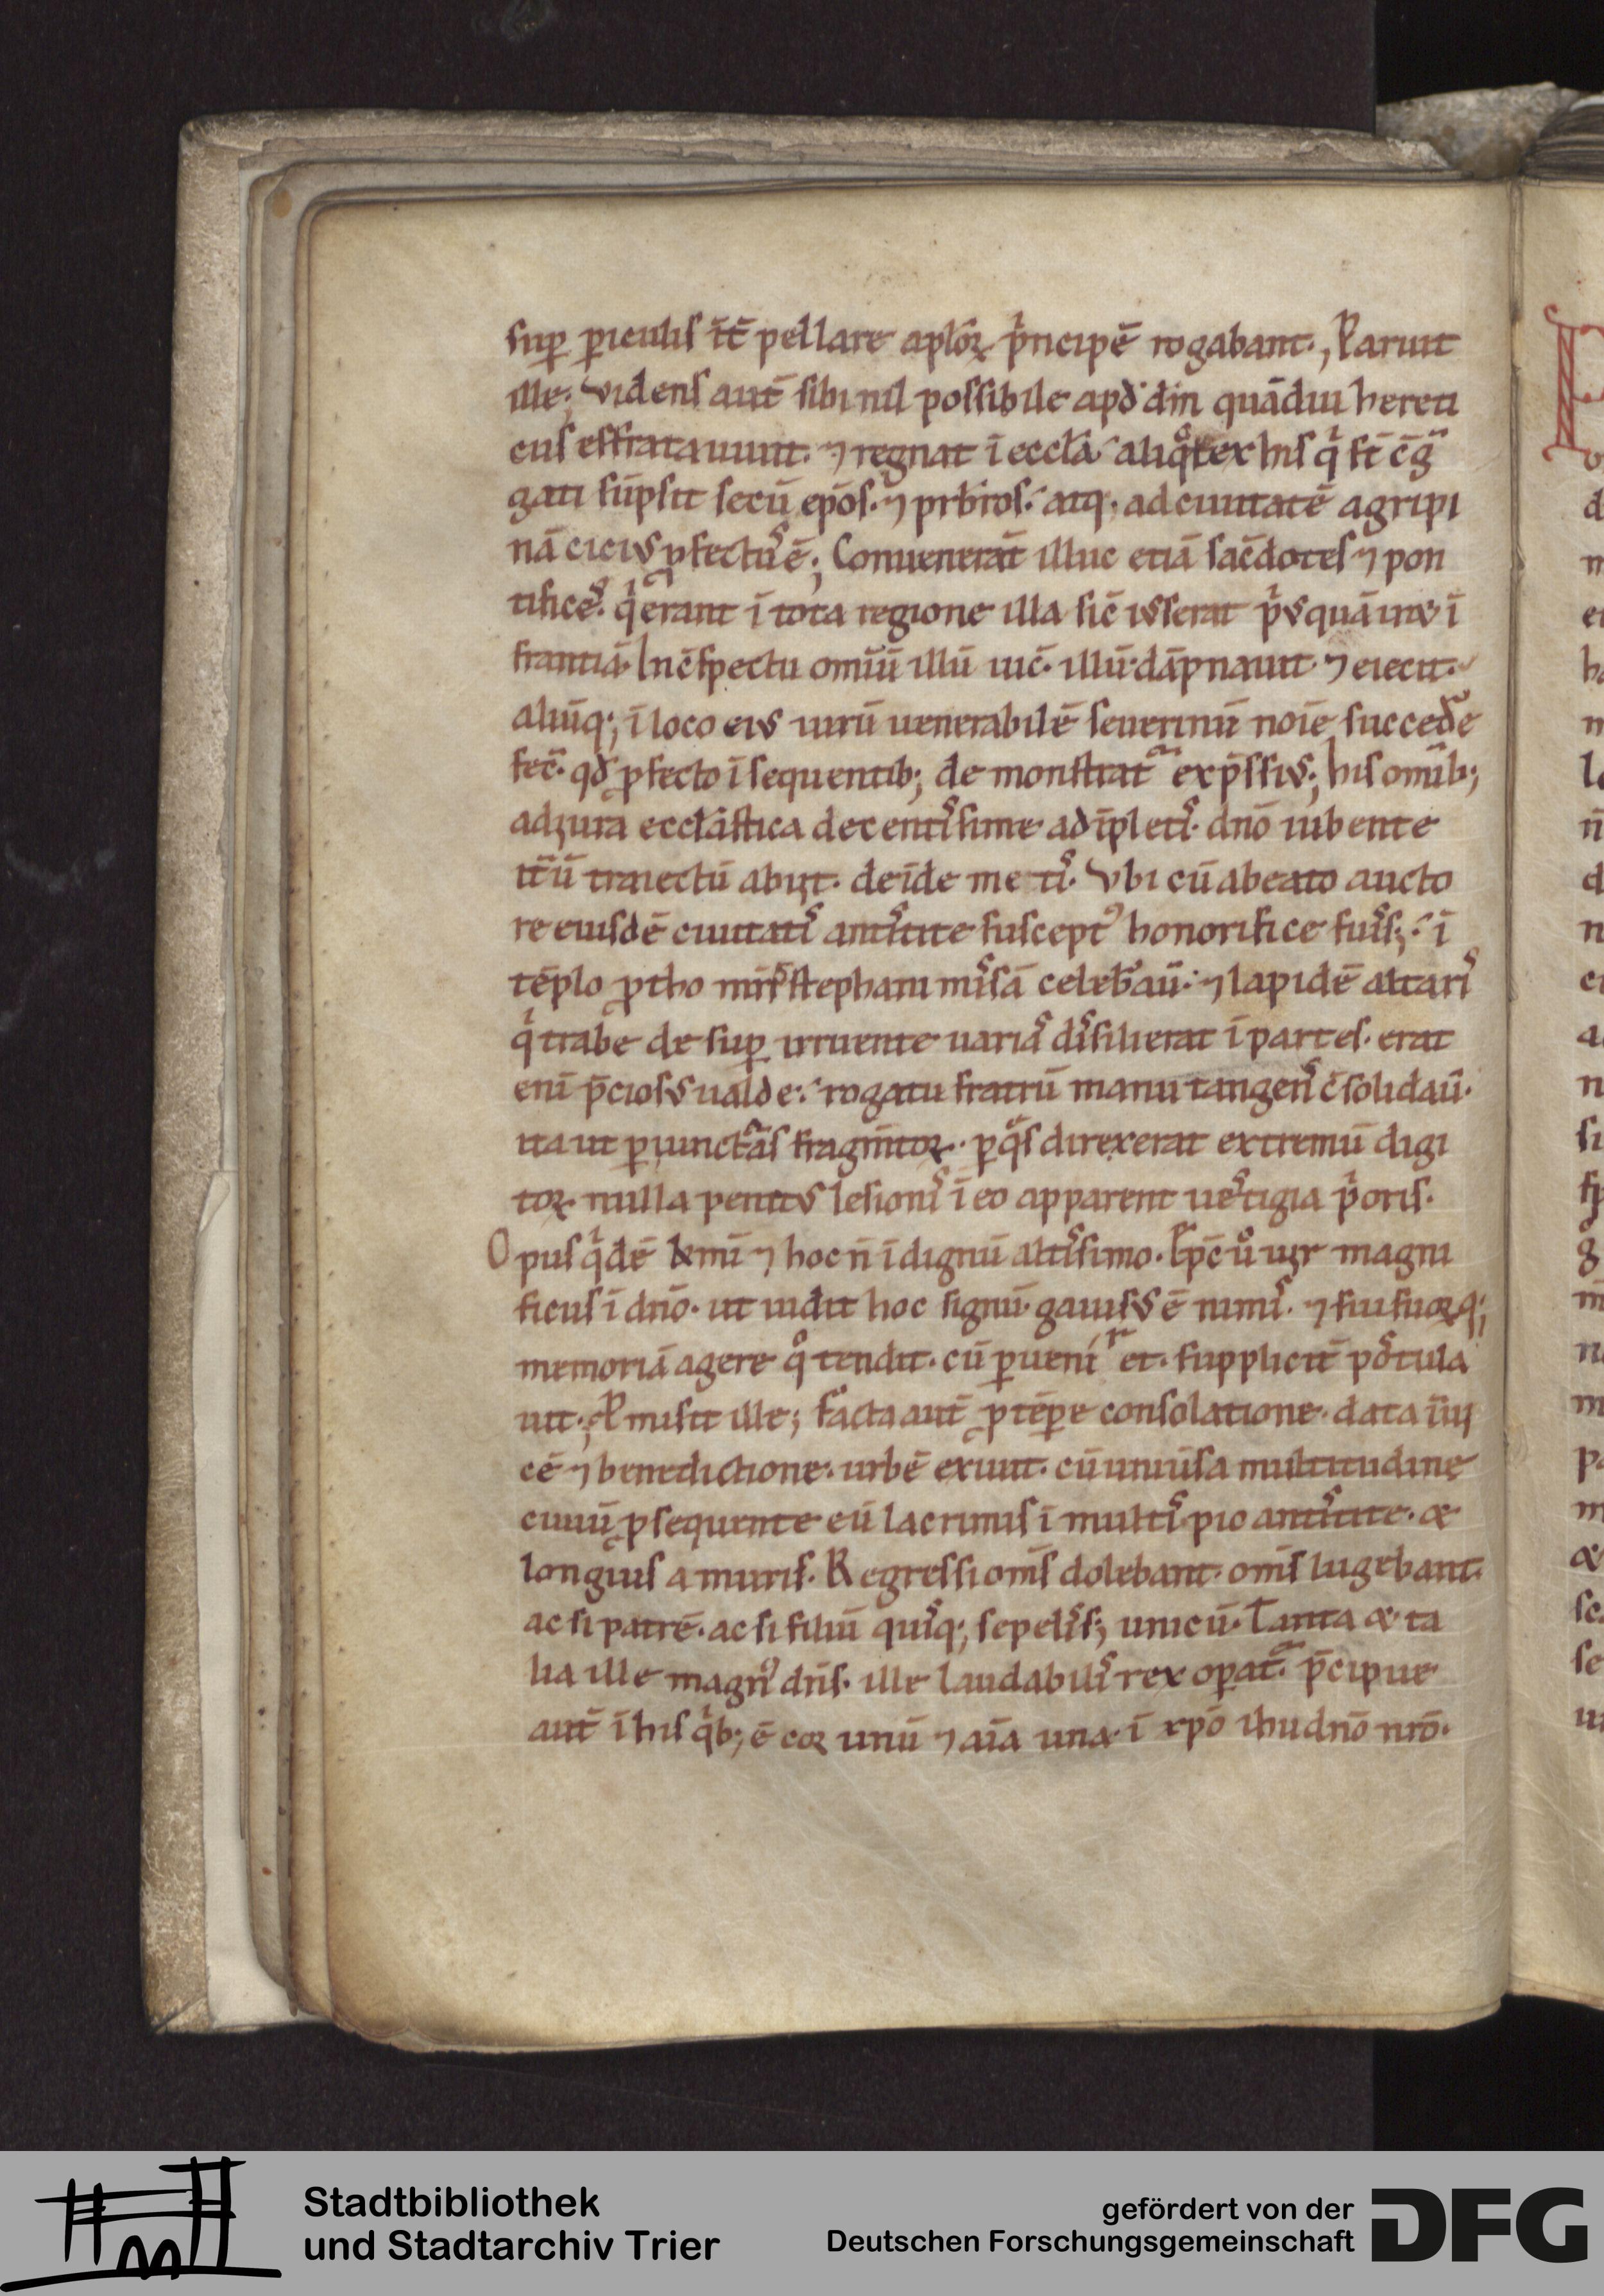 suꝑ ꝑiculis īt̄ pellare apl̄oꝝ pͥncipē rogabant., Paruit
ille; videns aut̄ sibi nil possibile apd̓ dīn quādiu hereti
cus effrata uiuit. ⁊ regnat ī eccl̄a aliqͦt ex his qͥ st̄ c̄g̃
gati sūpsit secū ep̄os. ⁊ prb̄ros. atq. ad ciuitatē agripi
nā ciciꝰ ꝓfectꝰ ē; Conuenerāt illuc etiā sac̄dotes ⁊ pon
tifices. qͥ erant ī tota regione illa sic̄ iꝰserat pͥꝰquā iret ī
frantiā. In c̄spectu omīū illū uic̄. illū dāpnauit ⁊ eiecit.
aliūq; ī loco eiꝰ uirū uenerabilē seuerinū noīe succed̓e
fec̄. qd̓ ꝓfecto ī sequentib; demonstrat̄ exp̄ssiꝰ; his omīb;
ad iura eccl̄astica decentissime adīpletis. dn̄o iubente
it̄ū traiectū abiit. deīde metis. Vbi cū a beato aucto
re eiusdē ciuitatis antistite suscept᷒ honorifice fuiss; ī
tēplo ꝓtho mr̄is stephani missā celeb̓uī: ⁊ lapidē altaris
qͥ trabe desuꝑ irruente uarias dissilierat ī partes. erat
enī p̄ciosꝰ ualde: rogatu fratrū manu tangens c̄solidauī.
ita ut ꝑ iuncturas fragm̄toꝝ. ꝑ qͣs direxerat extremū digi
toꝝ nulla penitꝰ lesionis ī eo apparent uestigia pͥoris.
Opus qͥdē ⁊ hoc n̄ īdignū altissimo. Ip̄e uͦ uir magni
ficus ī dn̄o. ut uidit hoc signū. gauisꝰ ē nimis. ⁊ sui suoꝝq;
memoriā agere qͦ tendit. cū ꝑuenir et. suppliciꝰ postula
uit; Pmisit ille; Facta aut̄ ꝓ tēpe consolatione. data
cē ⁊ benedictione. urbē exiuit. cū uniūsa multitudine
ciuiū ꝓsequente eū lacrimis ī multis pio antistite. &
longius a muris. Regressi om̄s dolebant. om̄s lugebant.
ac si patrē. ac si filiū quisq; sepeliss; unicū. Tanta & ta
lia ille magn᷒ dn̄s. ille laudabilis rex opat̄. p̄cipue
aut̄ ī his qͥb; ē coꝝ unū ⁊ aīa una. ī xp̄o ih̄u dn̄o nr̄o.
Stadtbibliothek
und Stadtarchiv Trier
gefördert von der
Deutschen Forschungsgemeinschaft
DFG